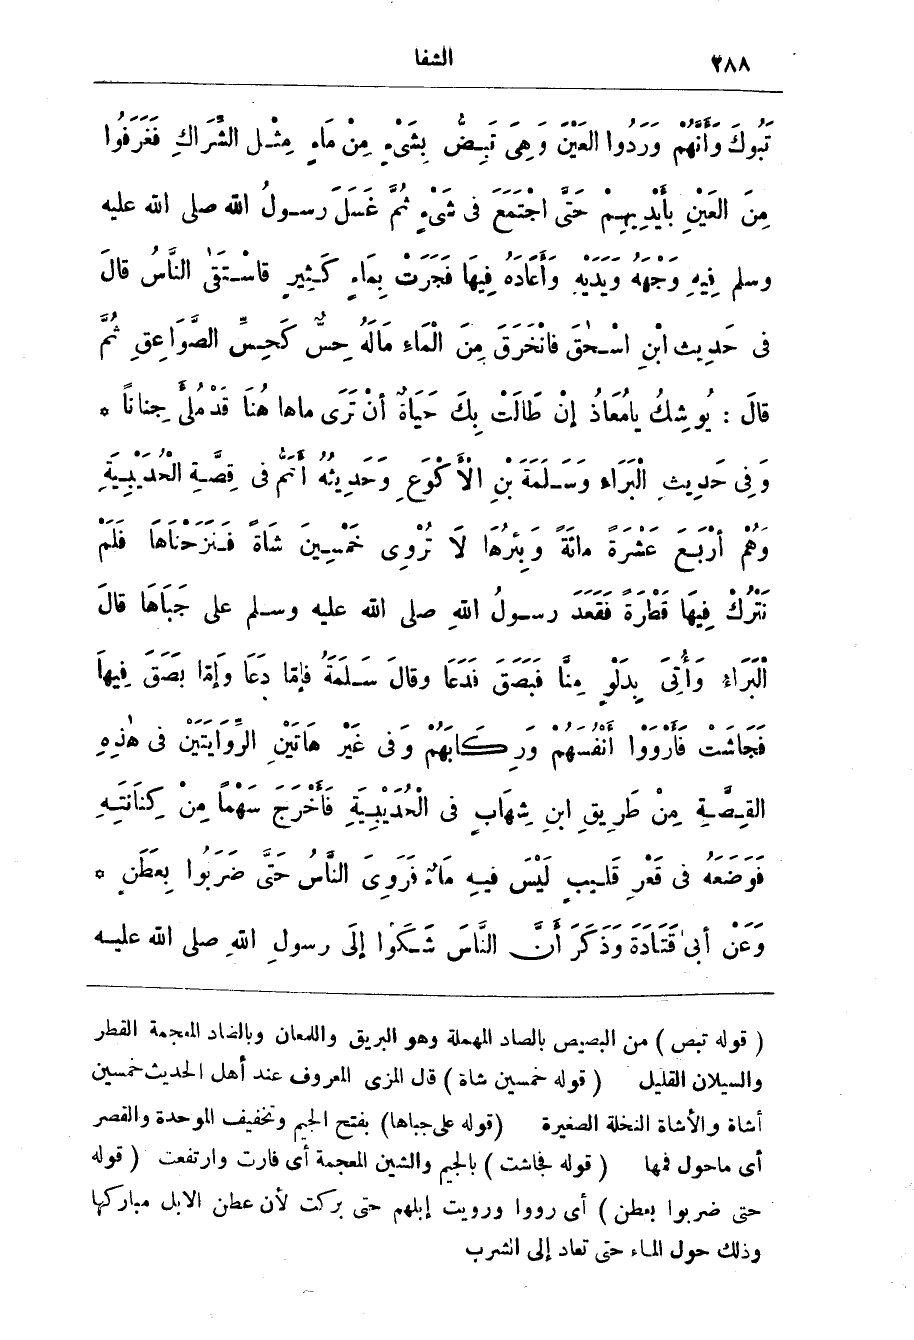 ٢٨٨
الشفا
تَبُوكَ وَأَنَّهُمْ وَرَدُوا العَيْنَ وَهِىَ تَبِضُّ بِشَىْءٍ مِنْ مَاءٍ مِثْـلِ الشِّرَاكِ فَغَرَفُوا
مِنَ العَيْنِ بِأَيْدِيهِـمْ حَتَّى اجْتَمَعَ فى شَىْءٍ ثُمَّ غَسَلَ رَسـولُ الله صلى الله عليه
وسلم فِيهِ وَجْهَهُ وَيَدَيْهِ وَأَعَادَهُ فِيهَا فَجَرَتْ بِمَاءٍ كَـثِيرٍ فَاسْـتَقَى النَّاسُ قالَ
فى حَدِيث ابنِ اسْـحٰقَ فَانْخَرَقَ مِنَ الْمَاءِ مَالَهُ حِسٌّ كَحِسِّ الصَّوَاعِقِ ثُمَّ
قالَ : يُوشِكُ يامُعَاذُ إِنْ طَالَتْ بِكَ حَيَاةٌ أنْ تَرَى ماهَا هُنَا قَدْ مُلِئَ جِنَانًا *
وَفى حَدِيثِ الْبَرَاءِ وَسَـلَمَةَ بْنِ الْأَكْوَعِ وَحَدِيثُهُ أَتَمُّ فى قِصَّـةِ الْحُدَيْبِيَةِ
وَهُمْ أَرْبَعَ عَشْرَةَ مائَةً وَبِئْرُهَا لَا تُرْوِى خَمْسِـينَ شَاةً فَـنَزَحْنَاهَا فَلَمْ
نَتْرُكْ فِيهَا قَطْرَةً فَقَعَدَ رسـولُ اللهِ صلى الله عليه وسـلم على جَبَاهَا قالَ
الْبَرَاءُ وَأُتِىَ بِدَلْوٍ مِنْهَا فَبَصَقَ فَدَعَا وقالَ سَـلَمَةُ فَإِمَّا دَعَا وَإِمَّا بَصَقَ فِيهاَ
فَجَاشَتْ فَأَرْوَوْا أَنْفُسَهُمْ وَرِكَابَهُمْ وَفى غَيْرِ هَاتَيْنِ الرِّوَايَتَيْنِ فى هٰذِهِ
القِـصَّـةِ مِنْ طَرِيقِ ابنِ شِهَابٍ فى الْحُدَيْبِيَةِ فَأَخْرَجَ سَهْمًا مِنْ كِنَانَتِهِ
فَوَضَعَهُ فى قَعْرِ قَلِيبٍ لَيْسَ فيهِ مَاءٌ فَرَوِىَ النَّاسُ حَتَّى ضَرَبُوا بِعَطَنٍ *
وَعَنْ أبى قَتَادَةَ وَذَكَرَ أَنَّ النَّاسَ شَـكَوْا إِلَى رسولِ اللهِ صلى الله عليـه
( قوله تبص ) من البصيص بالصاد المهملة وهو البريق واللمعان وبالضاد المعجمة القطر
والسيلان القليل ( قوله خمسين شاة ) قل المزى المعروف عند أهل الحديث خمسين
أشاة والأشاة النخلة الصغيرة (قوله على جباها) بفتح الجيم وتخفيف الموحدة والقصر
أى ماحول فمها ( قوله فجاشت ) بالجيم والشين المعجمة أى فارت وارتفعت ( قوله
حتى ضربوا بعطن ) أى رووا ورويت إبلهم حتى بركت لأن عطن الابل مباركها
وذلك حول الماء حتى تعاد إلى الشرب